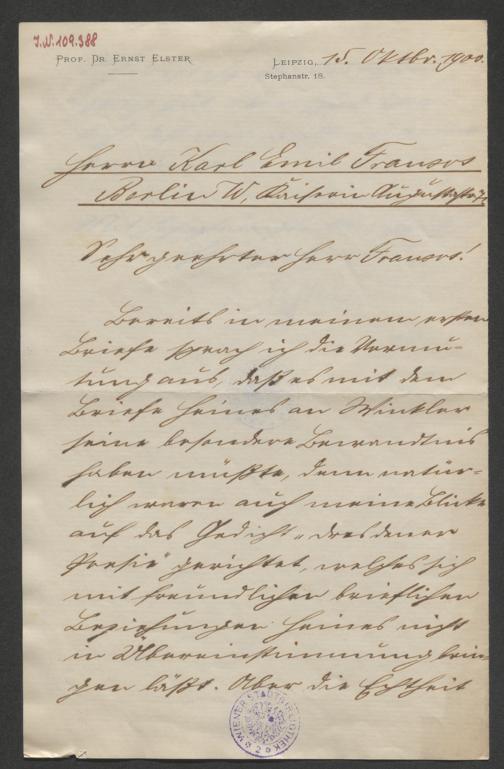 I.N. 109.388
PROF. DR. ERNST ELSTER
LEIPZIG, 15. Oktbr. 1900.
Stephanstr. 18.
Herrn Karl Emil Franzos
Berlin W, Kaiserin Augustastr.
Sehr geehrter Herr Franzos!
Bereits in meinem ersten
Briefe sprach ich die Vermu-
tung aus, daß es mit dem
Briefe Heines an Winkler
seine besondere Bewandtnis
haben müßte, denn natür-
lich waren auch meine Blicke
auf das Gedicht „Dresdener
Poesie" gerichtet, welches sich
mit freundlichen brieflichen
Beziehungen Heines nicht
in Übereinstimmung brin-
gen läßt. Aber die Echtheit
WIENER STADTBIBLIOTHEK